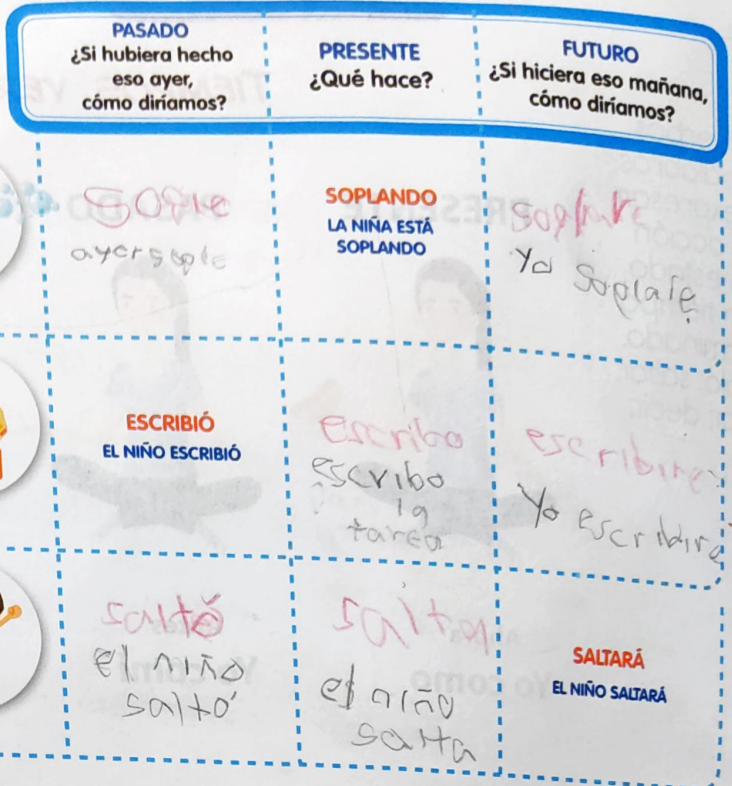 PASADO
¿Si hubiera hecho
eso ayer,
cómo diríamos?
PRESENTE
¿Qué hace?
FUTURO
¿Si hiciera eso mañana,
cómo diríamos?
Sople
ayer sople
SOPLANDO
LA NIÑA ESTÁ
SOPLANDO
soplare
Yo Soplare
ESCRIBIÓ
EL NIÑO ESCRIBIÓ
Escribo
escribo
la
tarea
escribire
Yo escribire
saltó
el niño
saltó
salta
el niño
salta
SALTARÁ
EL NIÑO SALTARÁ